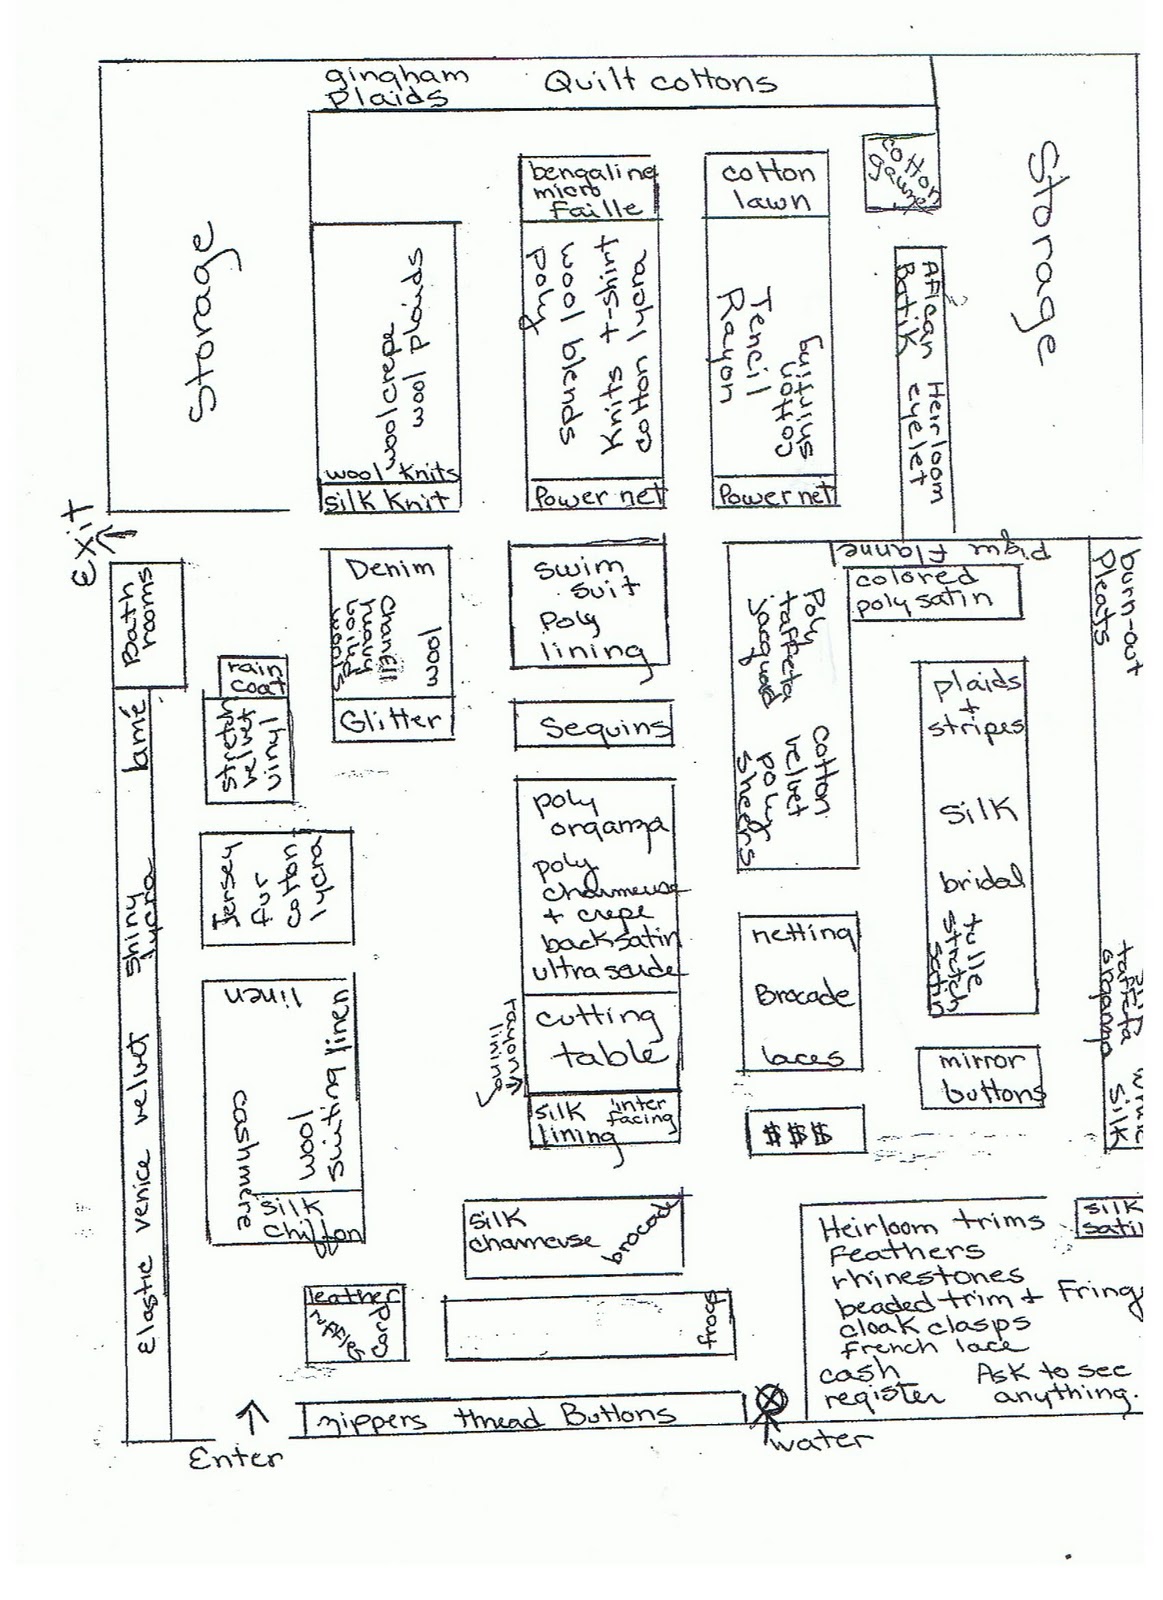 gingham
Plaids
Quilt cottons
Storage
Storage
bengaline
micro
Faille
cotton
lawn
cotton
gauze
wool crepe
wool plaids
wool knits
silk knit
poly
wool blends
Knits t-shirt
cotton lycra
Power net
Rayon
Tencil
cotton
Power net
African Heirloom
Batik eyelet
Exit
Baths
rooms
Denim
wool
heavy
wools
Glitter
swim
suit
poly
lining
Sequins
Flannel
colored
poly satin
Poly
taffeta
jacquard
cotton
velvet
poly
sheers
burn-out
Pleats
rain
coat
stretch
velvet
vinyl
Jersey
fur
cotton
lycra
lamé
shiny
lycra
Elastic venice velvet
poly
organza
poly
charmeuse
+ crepe
backsatin
ultra seude
cutting
table
rayon
lining
silk
lining
inter
facing
plaids
+
stripes
silk
bridal
tulle
stretch
satin
netting
Brocade
laces
mirror
buttons
$$$
taffeta
organza
silk
linen
cashmere
wool
suiting linen
silk
chiffon
silk
charmeuse
brocade
leather
cord
frogs
Heirloom trims
Feathers
rhinestones
beaded trim + Fring
cloak clasps
french lace
cash
register
Ask to see
anything.
silk
sati
zippers thread Buttons
Enter
water